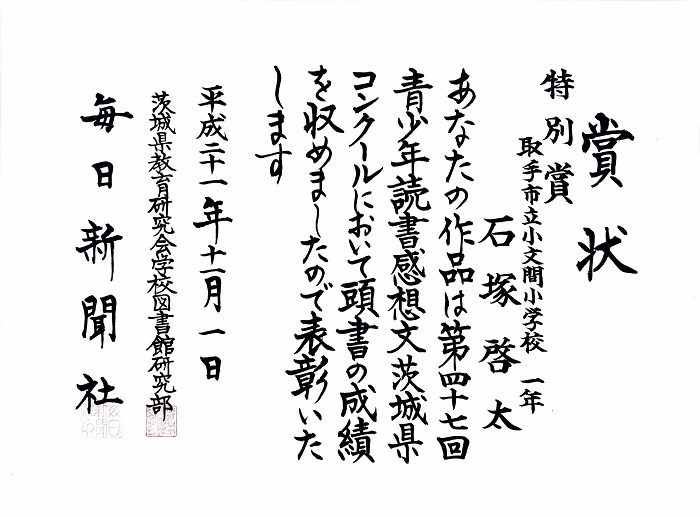 賞状
特別賞
取手市立小文間小学校 一年
石塚啓太
あなたの作品は第四十七回
青少年読書感想文茨城県
コンクールにおいて頭書の成績
を収めましたので表彰いた
します
平成二十一年十一月一日
茨城県教育研究会学校図書館研究部
毎日新聞社